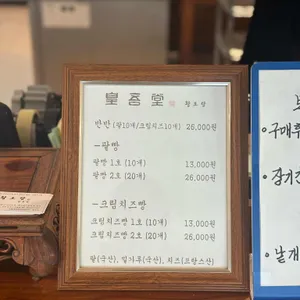 皇蚕堂 황오당
반반 (팥10개/크림치즈10개) 26,000원
-팥빵
팥빵 1호 (10개) 13,000원
팥빵 2호 (20개) 26,000원
-크림치즈빵
크림치즈빵 1호 (10개) 13,000원
크림치즈빵 2호 (20개) 26,000원
팥(국산), 밀가루(국산), 치즈(프랑스산)
• 구매후
• 낱개